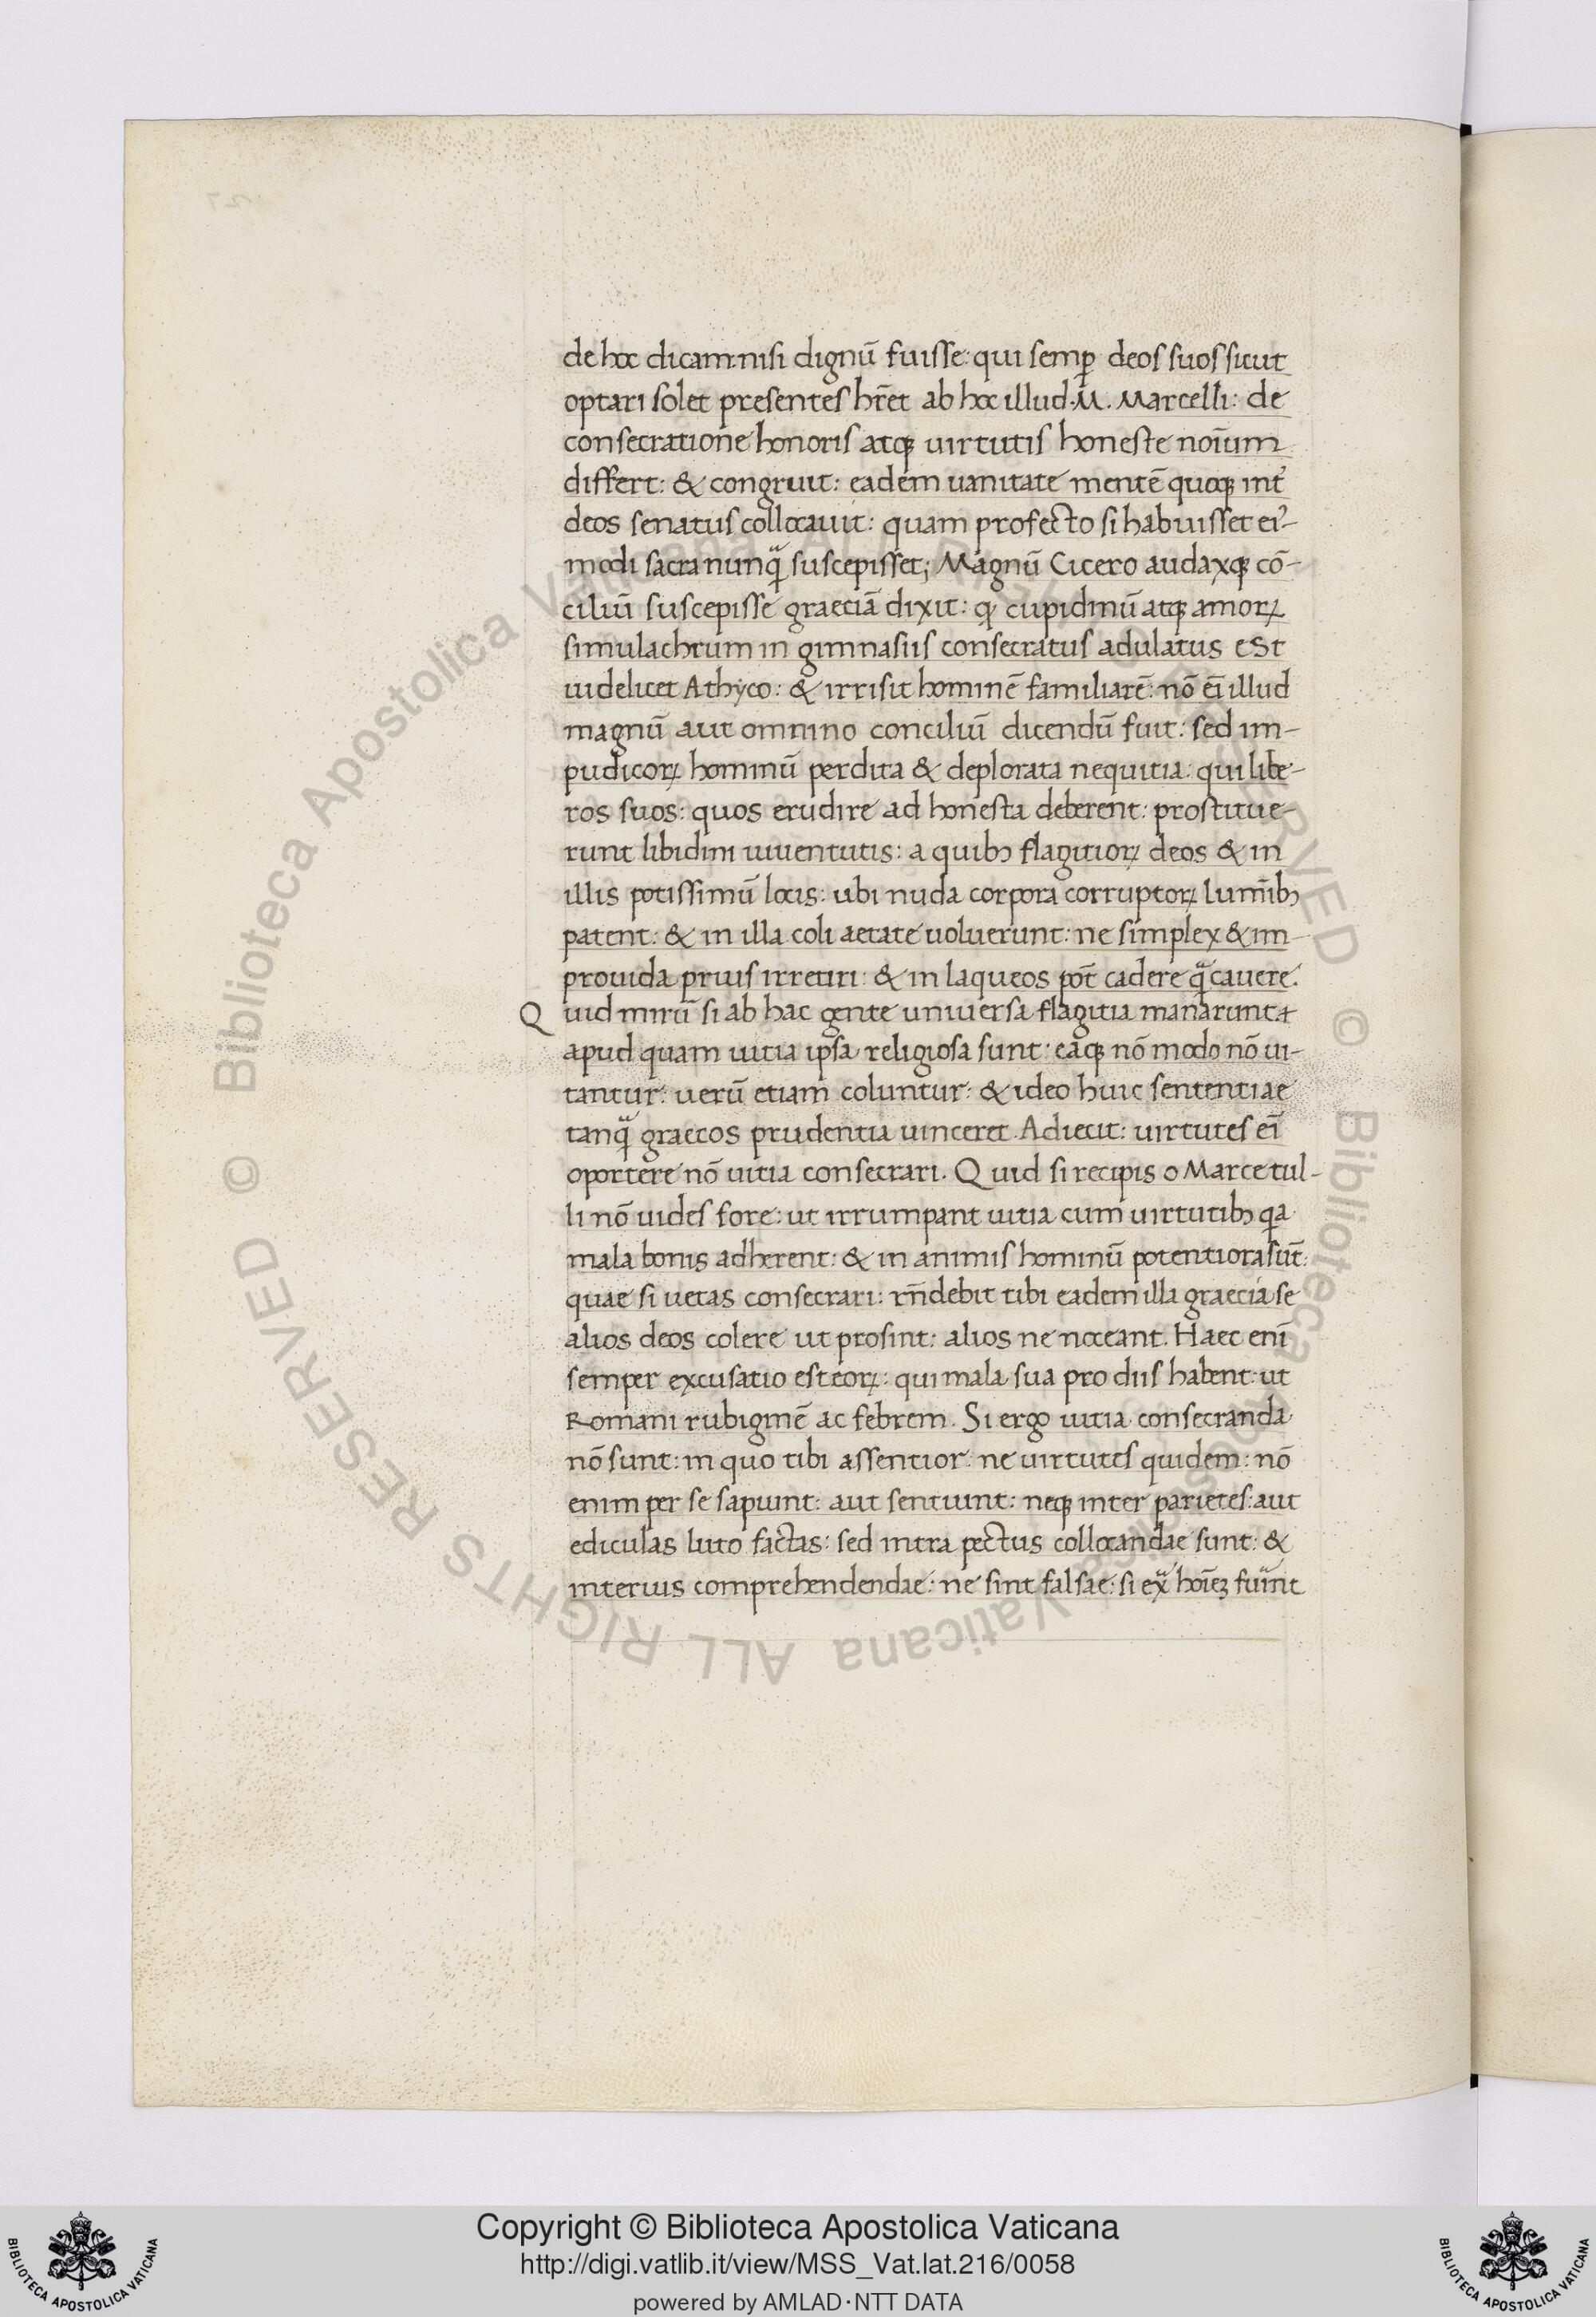 de hoc dicam: nisi dignū fuisse: qui semꝑ deos suos sicut
optari solet presentes hr̄et ab hoc illud. M. Marcelli: de
consecratione honoris atqꝫ uirtutis honeste noīum
differt: & congruit: eadem uanitate mentē quoqꝫ int᷑
deos senatus collocauit: quam profecto si habuisset ei᷒-
modi sacra nunqᷓ suscepisset; Magnū Cicero audaxqꝫ cō-
ciliū suscepisse graeciā dixit: ꝙ cupidinū atqꝫ amoꝝ
simulachrum in gimnasiis consecratus adulatus est
uidelicet Athyco: & irrisit hominē familiarē: nō eī illud
magnū aut omnino conciliū dicendū fuit: sed im-
pudicoꝝ hominū perdita & deplorata nequitia: qui libe-
ros suos: quos erudire ad honesta deberent: prostitue-
runt libidini iuuentutis: a quibꝫ flagitioꝝ deos & in
illis potissimū locis: ubi nuda corpora corruptoꝝ lumīibꝫ
patent: & in illa coli aetate uoluerunt: ne simplex & im-
prouida prius irretiri: & in laqueos pōt cadere qᷓ cauere.
Quid mirū si ab hac gente uniuersa flagitia manarunt
apud quam uitia ip̄sa religiosa sunt: eaqꝫ nō modo nō ui-
tantur: uerū etiam coluntur: & ideo huic sententiae
tanqᷓ graecos prudentia uinceret. Adiecit: uirtutes eī
oportere nō uitia consecrari. Quid si recipis o Marce tul-
li nō uides fore: ut irrumpant uitia cum uirtutibꝫ qa
mala bonis adherent: & in animis hominū potentiora sūt:
quae si uetas consecrari: rn̄debit tibi eadem illa graecia se
alios deos colere ut prosint: alios ne noceant. Haec enī
semper excusatio est eoꝝ: qui mala sua pro diis habent: ut
Romani rubiginē ac febrem. Si ergo uitia consecranda
nō sunt: in quo tibi assentior: ne uirtutes quidem: nō
enim per se sapiunt: aut sentiunt: neqꝫ inter parietes: aut
ediculas luto factas: sed intra pectus collocandae sunt: &
interius comprehendendae: ne sint falsae: si exᷓ hoīeꝫ fuīnt
© Biblioteca Apostolica Vaticana ALL RIGHTS RESERVED © Biblioteca Apostolica Vaticana ALL RIGHTS RESERVED
BIBLIOTECA APOSTOLICA VATICANA
Copyright © Biblioteca Apostolica Vaticana
http://digi.vatlib.it/view/MSS_Vat.lat.216/0058
powered by AMLAD·NTT DATA
BIBLIOTECA APOSTOLICA VATICANA